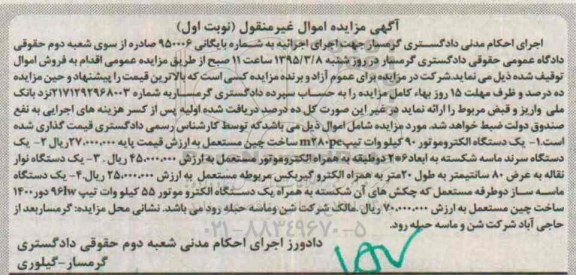 آگهی مزایده اموال غیرمنقول (نوبت اول)
اجرای احکام مدنی دادگستری گرمسار جهت اجرای اجرائیه به شماره بایگانی ۹۵۰۰۰۶ صادره از سوی شعبه دوم حقوقی
دادگاه عمومی حقوقی دادگستری گرمسار در روز شنبه ۱۳۹۵/۳/۸ ساعت ۱۱ صبح از طریق مزایده عمومی اقدام به فروش اموال
توقیف شده ذیل می نماید.شرکت در مزایده برای عموم آزاد و برنده مزایده کسی است که بالاترین قیمت را پیشنهاد و حین مزایده
ده درصد و ظرف مهلت ۱۵ روز بهاء کامل مزایده را به حساب سپرده دادگستری گرمسار به شماره ۲۱۷۱۲۹۲۹۶۸۰۰۳ نزد بانک
ملی واریز و قبض مربوط را ارائه نماید در غیر این صورت کل ده درصد دریافت شده اولیه پس از کسر هزینه های اجرایی به نفع
صندوق دولت ضبط خواهد شد. مورد مزایده شامل اموال ذیل می باشد که توسط کارشناس رسمی دادگستری قیمت گذاری شده
است.۱- یک دستگاه الکتروموتور ۹۰ کیلو وات تیپ m۲۸۰pe ساخت چین مستعمل به ارزش قیمت پایه ۲۷,۰۰۰,۰۰۰ریال ۲- یک
دستگاه سرند ماسه شکسته به ابعاد۶×۲ دوطبقه به همراه الکتروموتور مستعمل به ارزش ۴۵,۰۰۰,۰۰۰ ریال ۳- یک دستگاه نوار
نقاله به عرض ۸۰ سانتیمتر به طول ۲۰متر به همراه الکترو گیربکس مربوطه مستعمل به ارزش ۲۵,۰۰۰,۰۰۰ ریال.۴- یک دستگاه
ماسه ساز دوطرفه مستعمل که چکش های آن شکسته به همراه یک دستگاه الکترو موتور ۵۵ کیلو وات تیپ ۹۶lw دور۱۴۰۰
ساخت چین مستعمل به ارزش ۷۰,۰۰۰,۰۰۰ ریال مالک شرکت شن وماسه حبله رود می باشد. نشانی محل مزایده: گرمساربعد از
حاجی آباد شرکت شن و ماسه حبله رود.
دادورز اجرای احکام مدنی شعبه دوم حقوقی دادگستری
گرمسار-گیلوری
۰۲۱-۸۸۳۴۹۶۷۰-۵